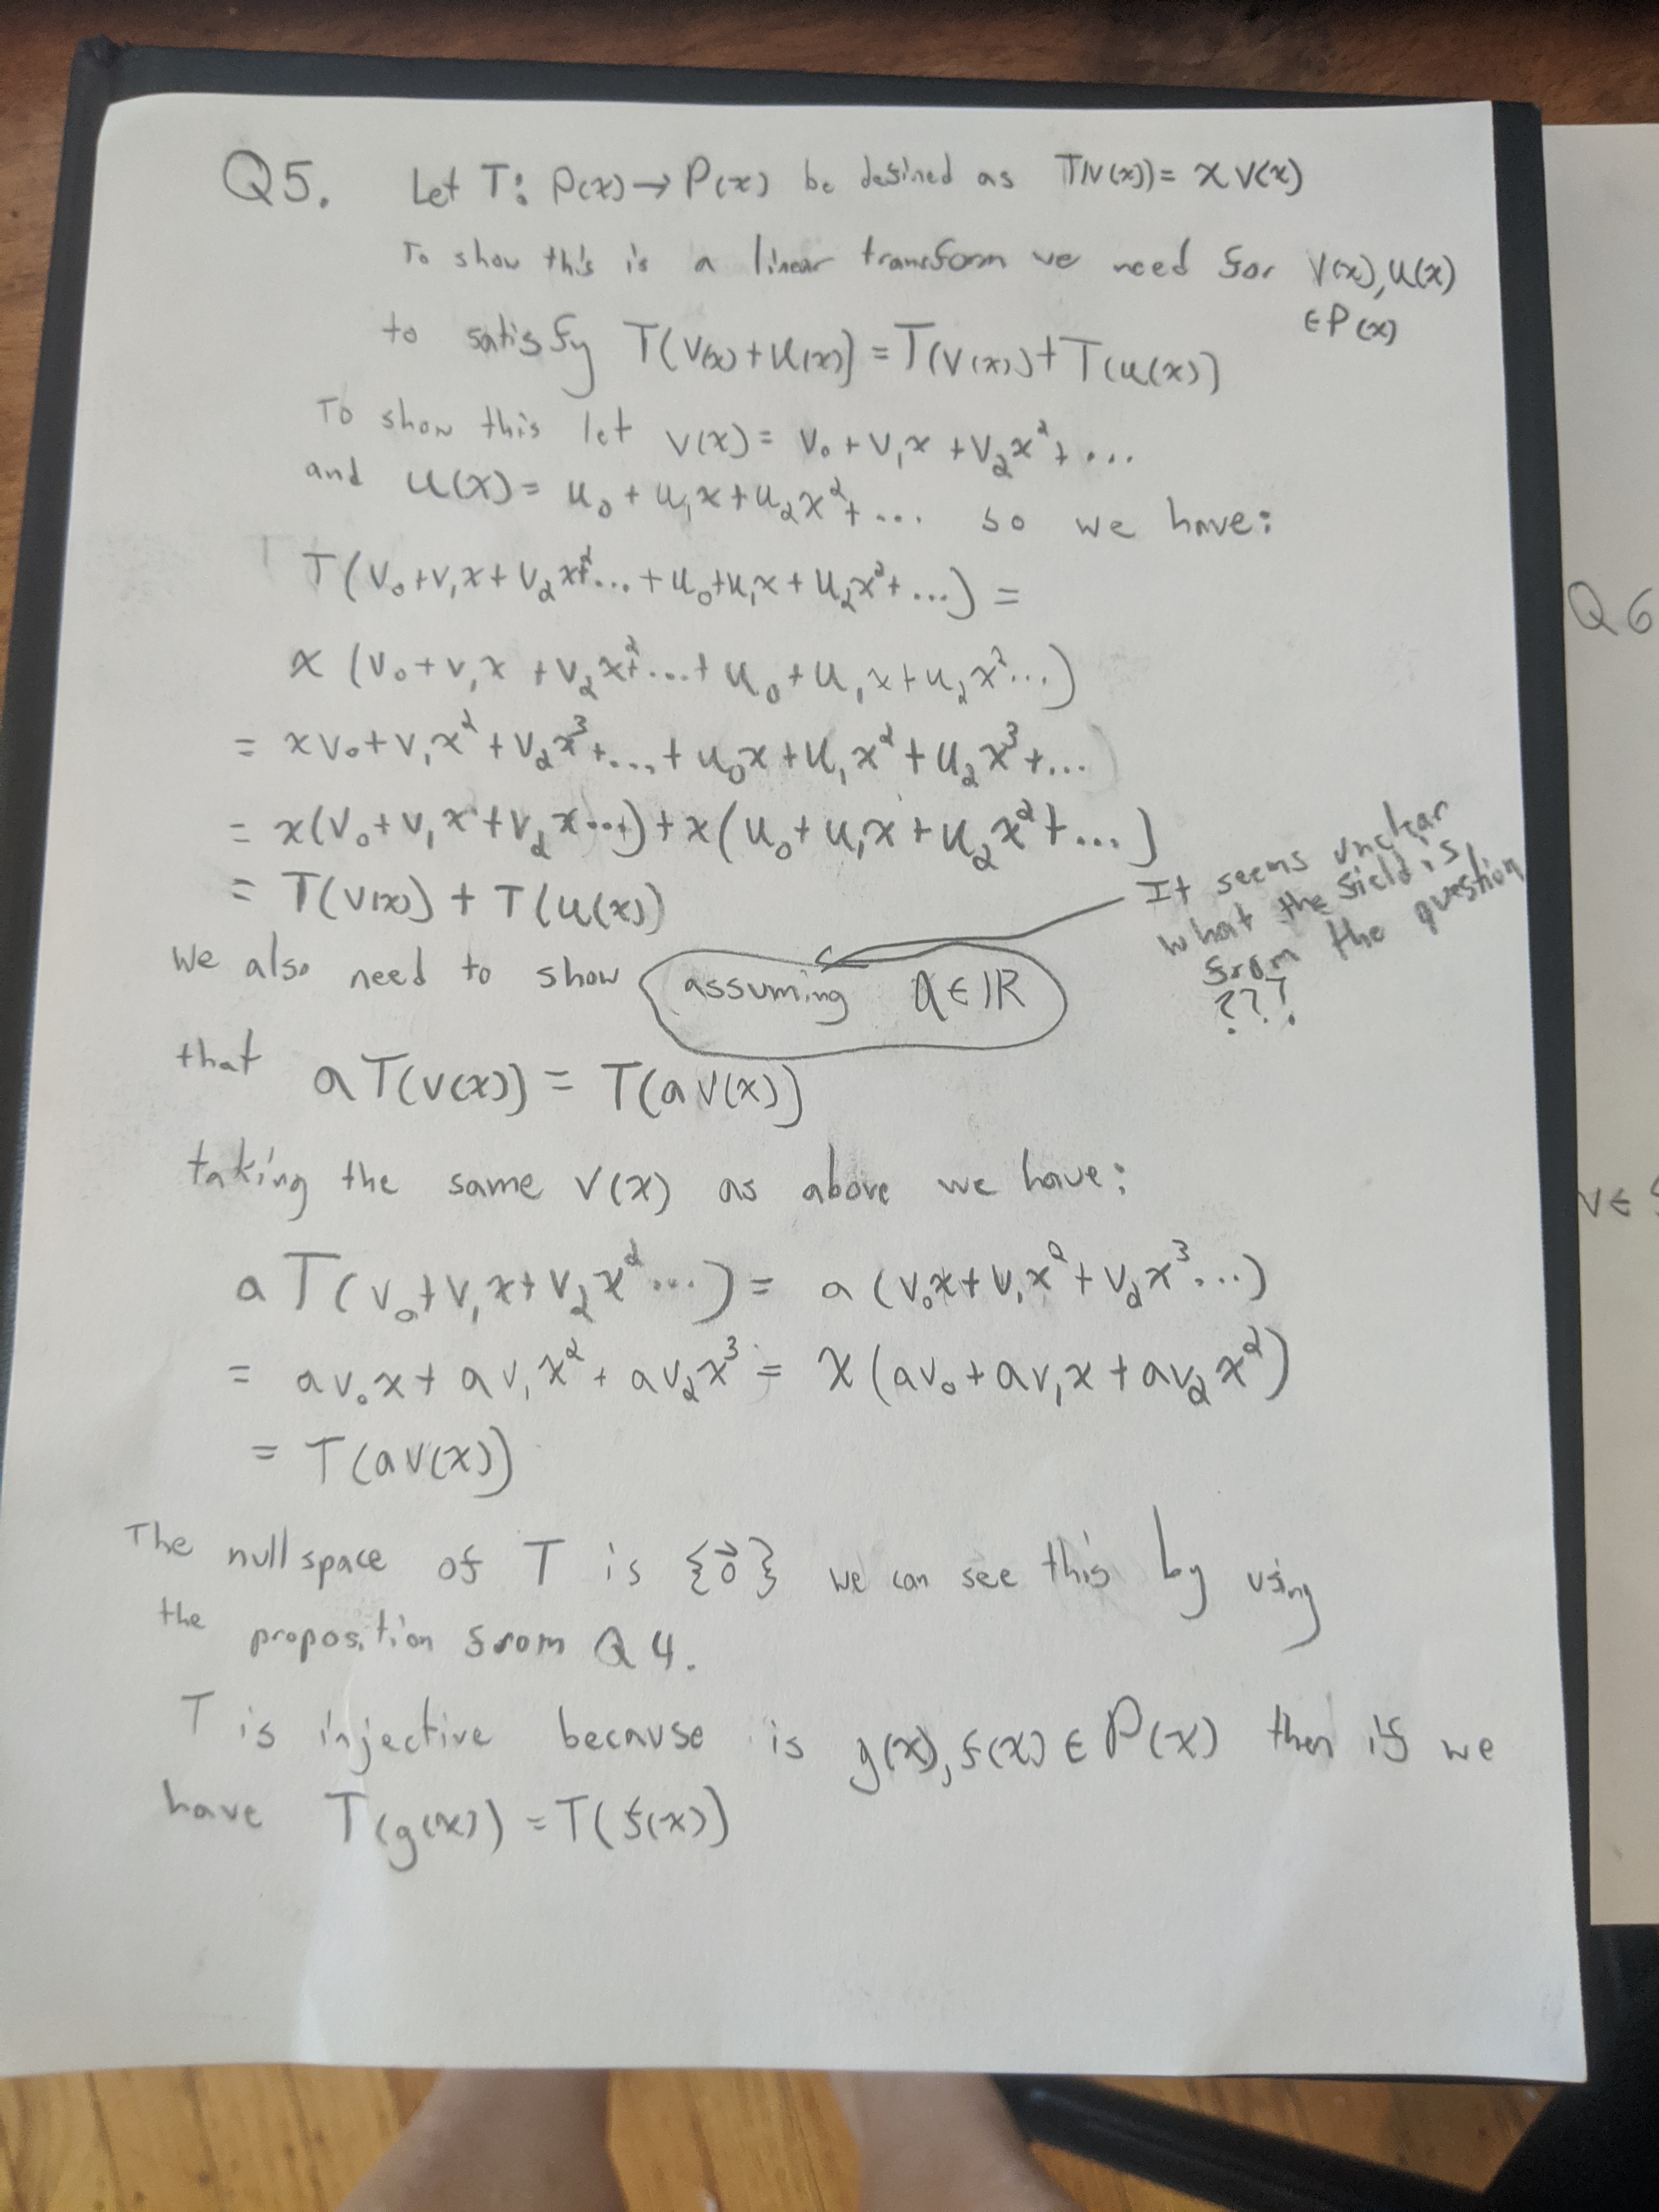 Q5. Let T: P(x) → P(x) be defined as T(v(x)) = x v(x)
To show this is a linear transform we need for v(x), u(x)
∈ P(x)
to satisfy T(v(x) + u(x)) = T(v(x)) + T(u(x))
To show this let v(x) = v₀ + v₁x + v₂x² + ...
and u(x) = u₀ + u₁x + u₂x² + ... so we have:
T(v₀ + v₁x + v₂x² + ... + u₀ + u₁x + u₂x² + ...) =
x (v₀ + v₁x + v₂x² + ... + u₀ + u₁x + u₂x² ...)
= xv₀ + v₁x² + v₂x³ + ... + u₀x + u₁x² + u₂x³ + ...
= x(v₀ + v₁x + v₂x ...+) + x(u₀ + u₁x + u₂x² + ...)
= T(v(x)) + T(u(x))
It seems unclear
what the field is
from the question
???
We also need to show assuming a ∈ ℝ
that aT(v(x)) = T(av(x))
taking the same v(x) as above we have:
aT(v₀ + v₁x + v₂x² ...) = a(v₀x + v₁x² + v₂x³ ...)
= av₀x + av₁x² + av₂x³ = x(av₀ + av₁x + av₂x²)
= T(av(x))
The nullspace of T is {0⃗} we can see this by using
the proposition from Q4.
T is injective because is g(x), f(x) ∈ P(x) then if we
have T(g(x)) = T(f(x))
Q6
v ∈